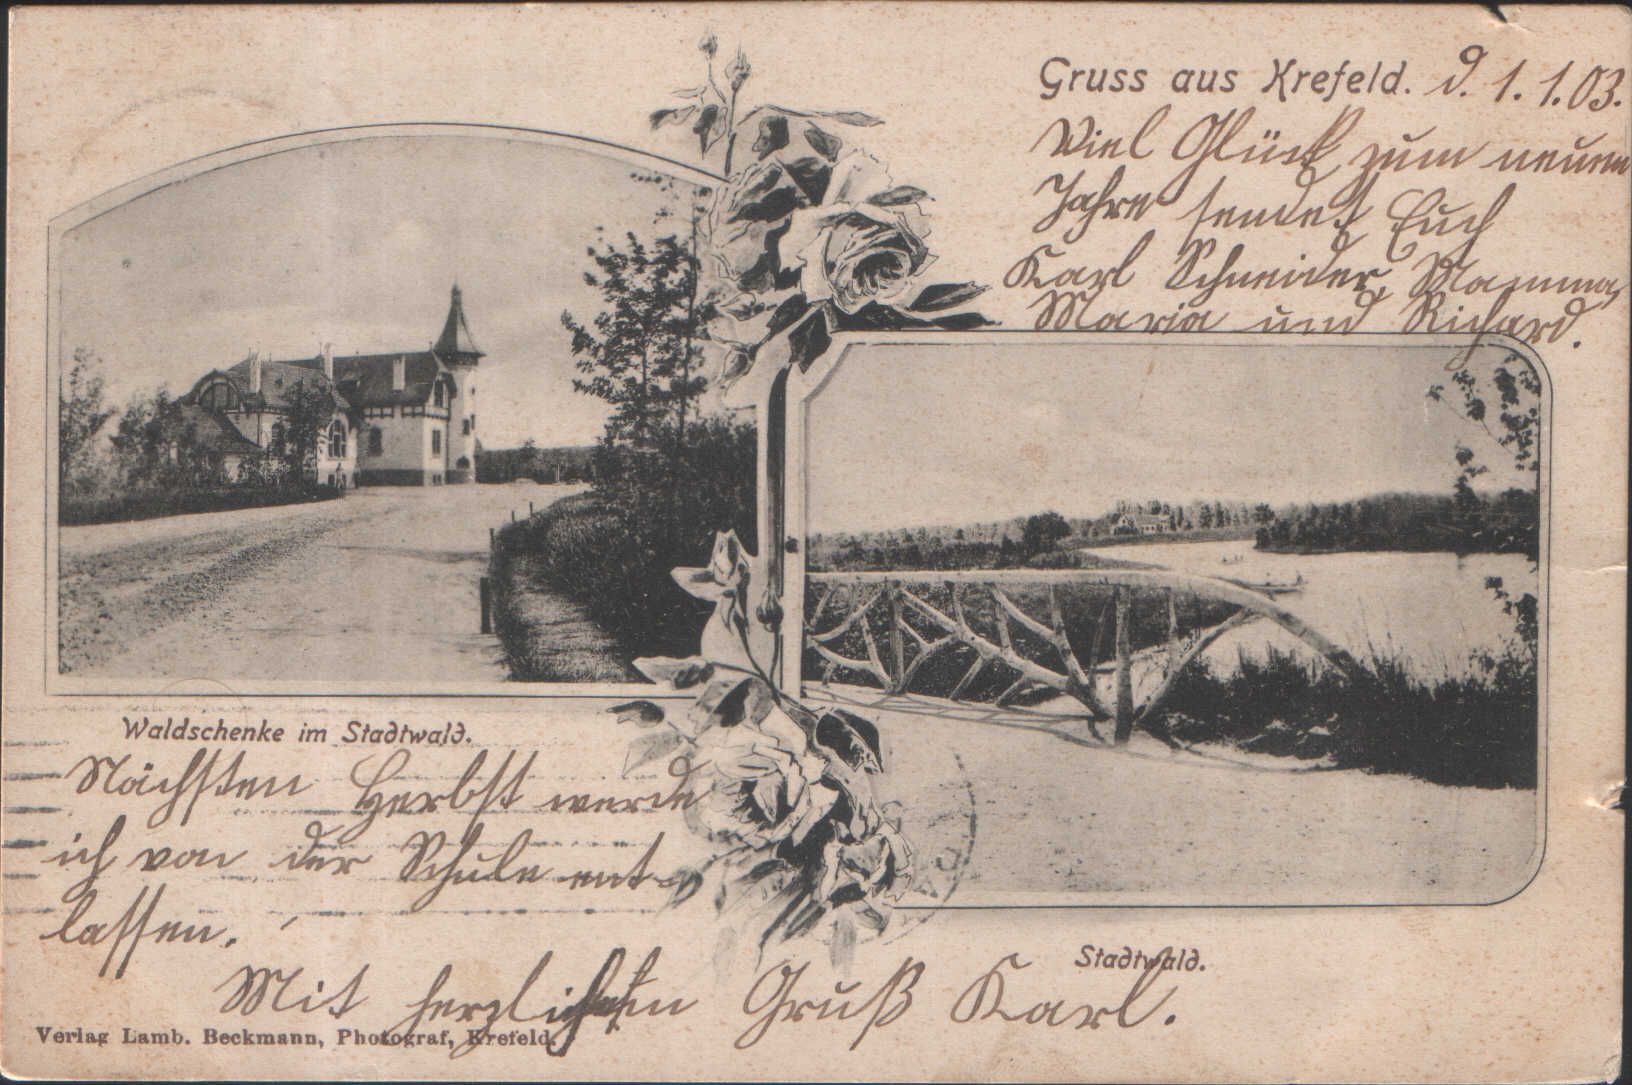 Gruss aus Krefeld. d. 1. 1. 03.
Viel Glück zum neuen
Jahre sendet Euch
Karl Schneider, Mamma,
Maria und Richard.
Waldschenke im Stadtwald.
Nächsten Herbst werde
ich von der Schule ent-
lassen.
Stadtwald.
Mit herzlichen Gruß Karl.
Verlag Lamb. Beckmann, Photograf, Krefeld.